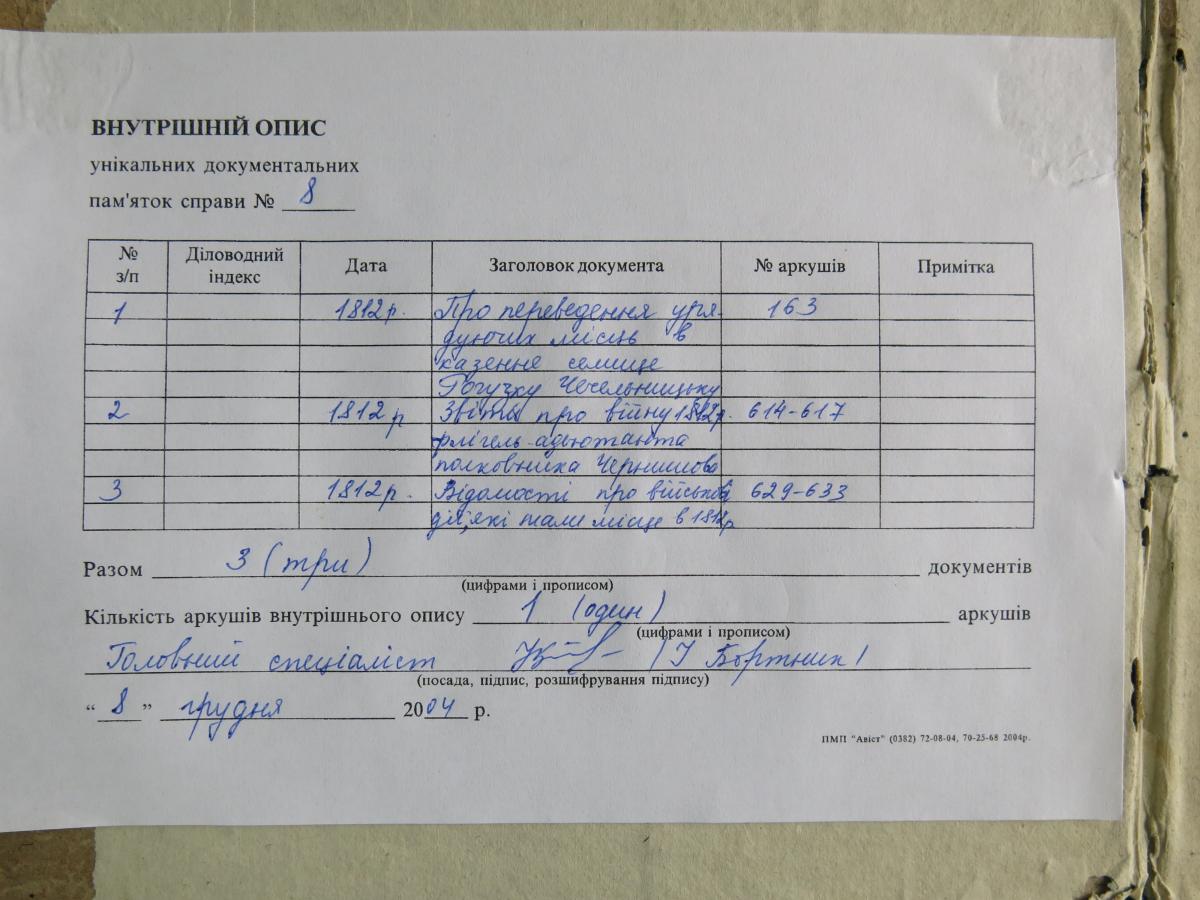 ВНУТРІШНІЙ ОПИС
унікальних документальних
пам'яток справи № 8
№ з/п Діловодний індекс Дата Заголовок документа № аркушів Примітка
1 1812 р. Про переведення уря- 163
дуючих місць в
казенне селище
Чечельницьку
2 1812 р Звіти про війну 1812 р. 614-617
флігель-адьютанта
полковника Чернишова
3 1812 р. Відомості про військові 629-633
дії, які мали місце в 1812 р
Разом 3 (три) документів
(цифрами і прописом)
Кількість аркушів внутрішнього опису 1 (один) аркушів
(цифрами і прописом)
Головний спеціаліст / І Бортник /
(посада, підпис, розшифрування підпису)
“ 8 ” грудня 2004 р.
ПМП "Авіст" (0382) 72-08-04, 70-25-68 2004р.